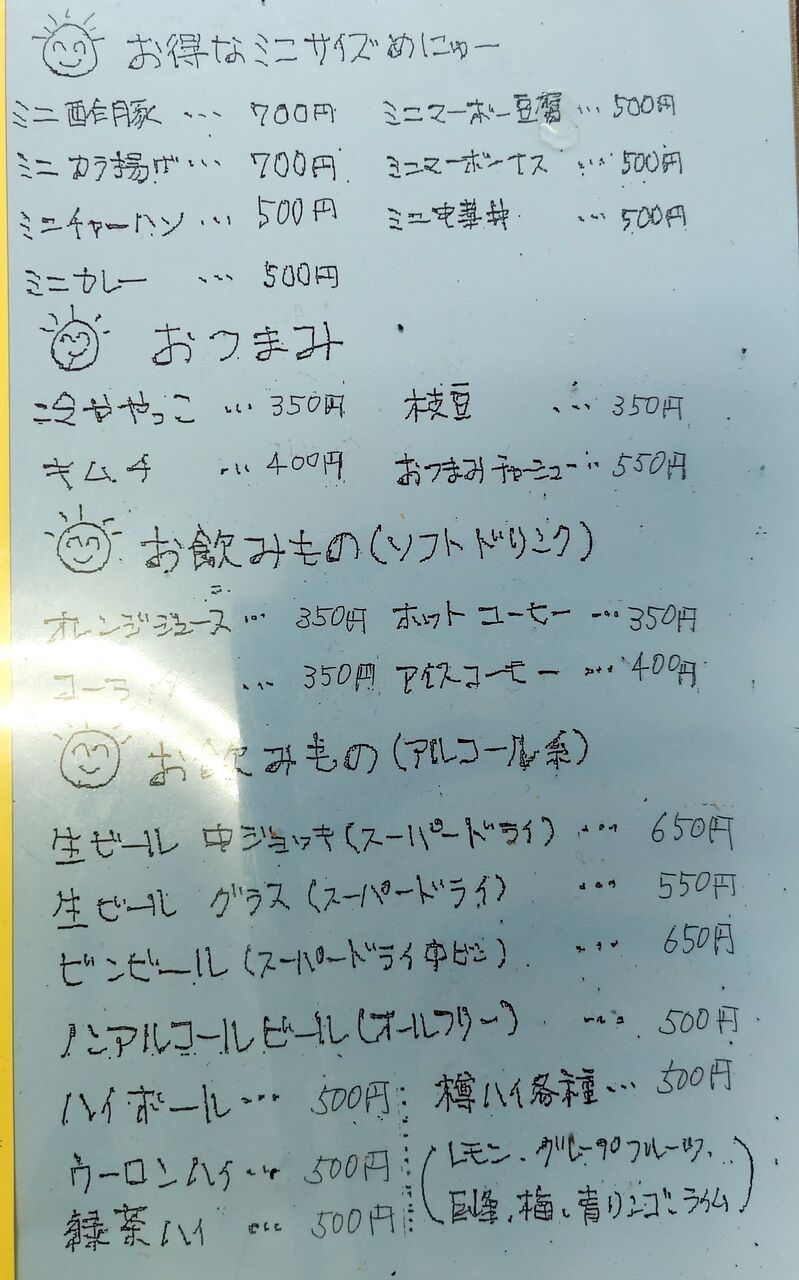 お得なミニサイズめにゅー
ミニ酢豚 … 700円 ミニマーボー豆腐 … 500円
ミニカラ揚げ … 700円 ミニマーボーナス … 500円
ミニチャーハン … 500円 ミニ中華丼 … 500円
ミニカレー … 500円
おつまみ
冷ややっこ … 350円 枝豆 … 350円
キムチ … 400円 おつまみチャーシュー … 550円
お飲みもの(ソフトドリンク)
オレンジジュース … 350円 ホットコーヒー … 350円
コーラ … 350円 アイスコーヒー … 400円
お飲みもの(アルコール系)
生ビール 中ジョッキ(スーパードライ) … 650円
生ビール グラス(スーパードライ) … 550円
ビンビール(スーパードライ中ビン) … 650円
ノンアルコールビール(オールフリー) … 500円
ハイボール … 500円 樽ハイ各種 … 500円
ウーロンハイ … 500円 (レモン、グレープフルーツ、
緑茶ハイ … 500円 巨峰、梅、青リンゴ、ライム)